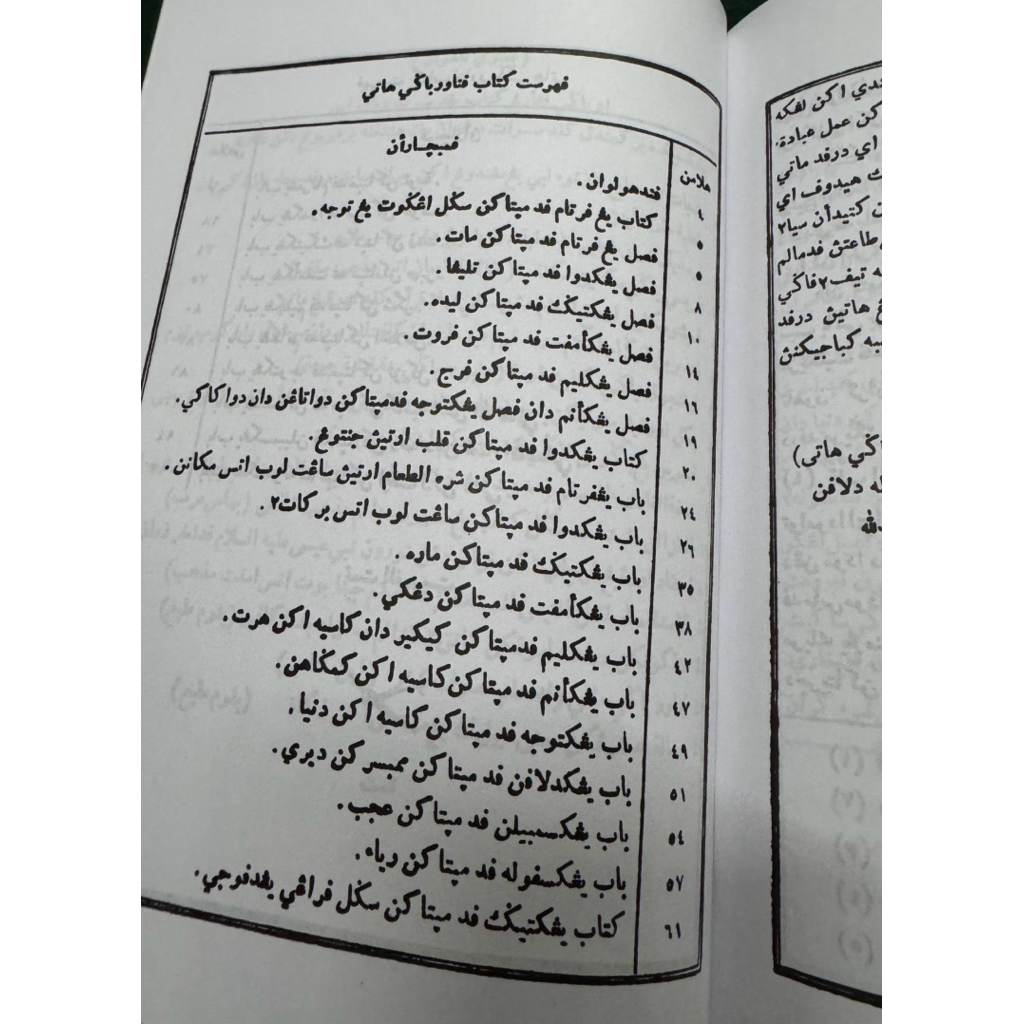 فهرست كتاب فناور باڬي هاتي
هلامن فمبچارأن
٤ فندهولوان.
٥ كتاب يڠ فرتام فد مپتاكن سڬل اڠڬوت يڠ توجه.
٥ فصل يڠ فرتام فد مپتاكن مات.
٨ فصل يڠكدوا فد مپتاكن تليڠا.
١٠ فصل يڠكتيڬ فد مپتاكن ليده.
١٤ فصل يڠكأمفت فد مپتاكن فروت.
١٦ فصل يڠكليم فد مپتاكن فرج.
١٩ فصل يڠكأنم دان فصل يڠكتوجه فدمپتاكن دواتاڠن دان دوا كاكي.
٢٠ كتاب يڠكدوا فد مپتاكن قلب ارتين جنتوڠ.
٢٤ باب يڠفرتام فد مپتاكن شره الطعام ارتين ساڠت لوب اتس مكانن.
٢٦ باب يڠكدوا فد مپتاكن ساڠت لوب اتس بركات٢.
٣٥ باب يڠكتيڬ فد مپتاكن ماره.
٣٨ باب يڠكأمفت فد مپتاكن دڠكي.
٤٢ باب يڠكليم فدمپتاكن كيكير دان كاسيه اكن هرت.
٤٧ باب يڠكأنم فد مپتاكن كاسيه اكن كمڬاهن.
٤٩ باب يڠكتوجه فد مپتاكن كاسيه اكن دنيا.
٥١ باب يڠكدلافن فد مپتاكن ممبسركن ديري.
٥٤ باب يڠكسمبيلن فد مپتاكن عجب.
٥٧ باب يڠكسفوله فد مپتاكن رياء.
٦١ كتاب يڠكتيڬ فد مپتاكن سڬل فراڠي يڠدفوجي.
اكن
كن عمل عبادة.
اي درفد ماتي
هيدوف اي
كتيدأن سيا٢
طاعتڽ فدمالم
تيف٢فاڬي
هاتيڽ درفد
كباجيكنن
هاتى)
دلافن